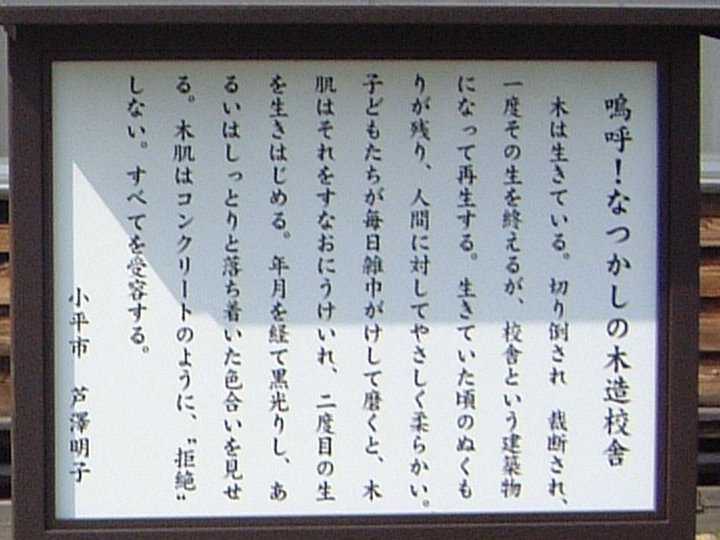 嗚呼！なつかしの木造校舎
木は生きている。切り倒され　裁断され、
一度その生を終えるが、校舎という建築物
になって再生する。生きていた頃のぬくも
りが残り、人間に対してやさしく柔らかい。
子どもたちが毎日雑巾がけして磨くと、木
肌はそれをすなおにうけいれ、二度目の生
を生きはじめる。年月を経て黒光りし、あ
るいはしっとりと落ち着いた色合いを見せ
る。木肌はコンクリートのように、〝拒絶〟
しない。すべてを受容する。
小平市　芦澤明子